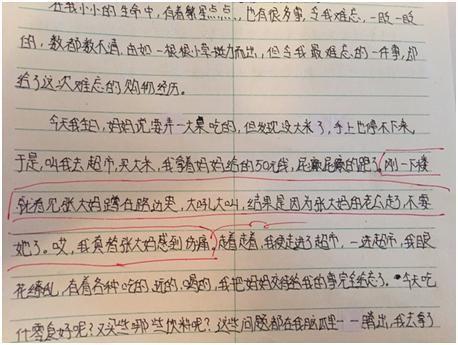 在我小小的生命中，有着繁星点点，也有很多事，令我难忘，一眨一眨
的，数都数不清，由如一根根小学挺力而出，但令我最难忘的一件事，却
给了这次难忘的购物经历。
今天我生日，妈妈说要弄一大桌吃的，但发现没大米了，手上也停不下来，
于是，叫我去超市，买大米，我拿着妈妈给的50元钱，屁颠屁颠的跑了，刚一下楼
就看见张大妈蹲在路边哭，大吵大叫，结果是因为张大妈的老公走了，不要
她了。哎，我真替张大妈感到伤痛。走着走着，我便走进了超市，一进超市，我眼
花缭乱，有着各种吃的玩的，喝的，我把妈妈交给我的事完全忘了。今天吃
什零食好呢？又买些那些饮料呢？这些问题都在我脑瓜里一一腾出，我去拿了